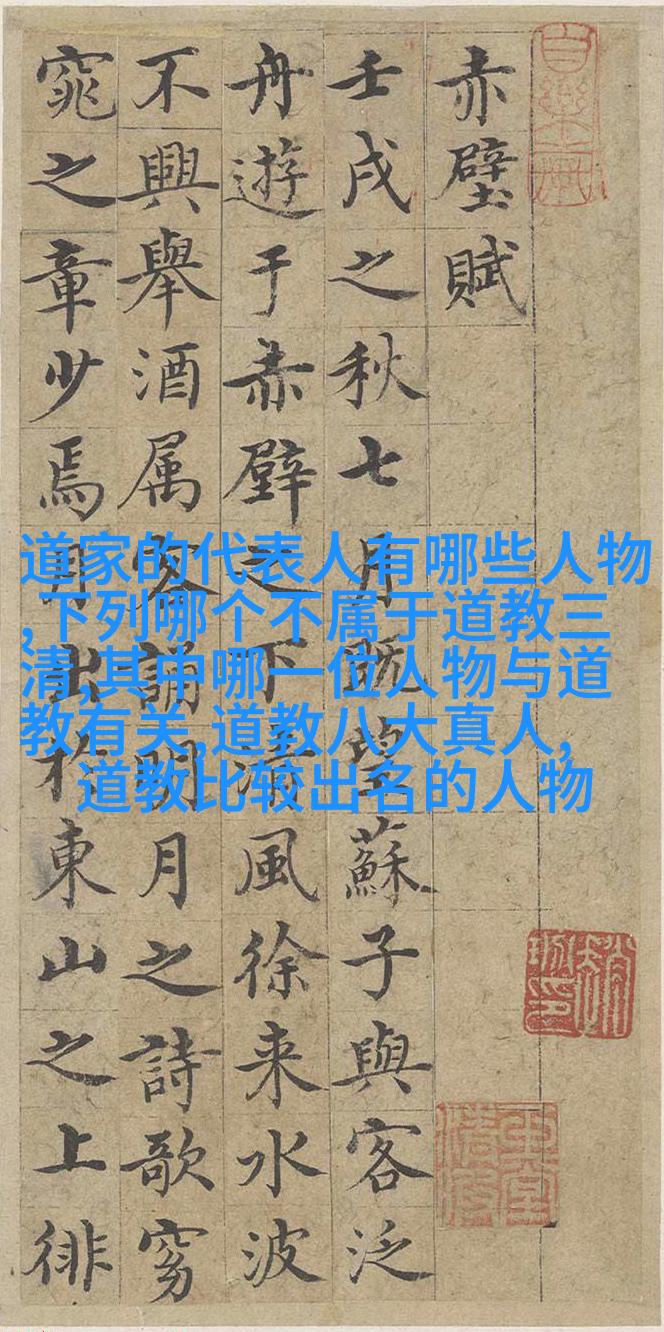 赤壁賦
壬戌之秋七月既望蘇子與客泛
舟遊于赤壁之下清風徐来水波
不興舉酒属客誦明月之詩歌窈
窕之章少焉月出於東山之上徘
道家的代表人有哪些人物
,下列哪个不属于道教三
清,其中哪一位人物与道
教有关,道教八大真人,
道教比较出名的人物